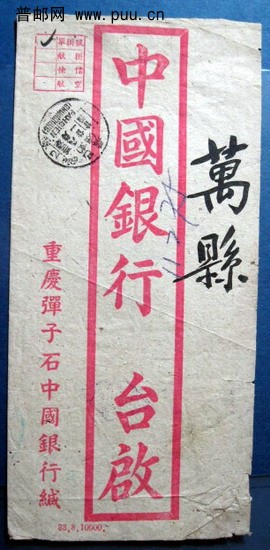 普邮网 www.puu.cn
萬縣
中國銀行 台啟
重慶彈子石中國銀行緘
33.8.10000.